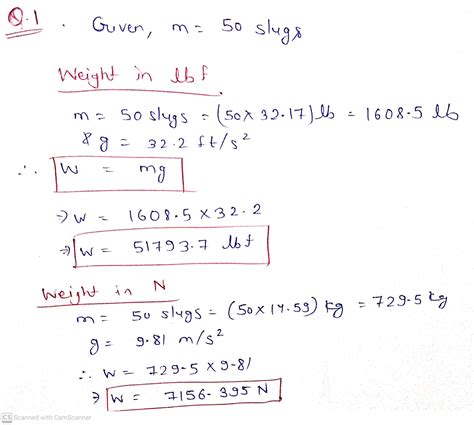 Q.1 . Given, m = 50 slugs
Weight in lbf
m = 50 slugs = (50 x 32.17) lb = 1608.5 lb
& g = 32.2 ft/s²
∴ W = mg
⇒ W = 1608.5 x 32.2
⇒ W = 51793.7 lbf
Weight in N
m = 50 slugs = (50 x 14.59) kg = 729.5 kg
g = 9.81 m/s²
∴ W = 729.5 x 9.81
⇒ W = 7156.395 N
CS Scanned with CamScanner